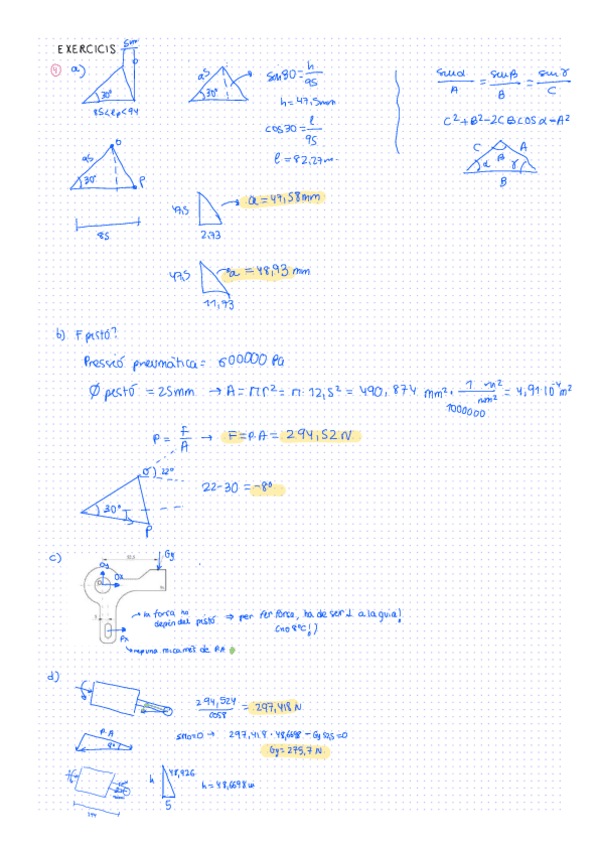 EXERCICIS
5m
4 a)
95
30°
85<lp<94
95
30°
sin30 = h/95
h = 47,5mm
cos30 = l/95
l = 82,27m
sinα/A = sinβ/B = sinγ/C
C²+B²-2CBcosα=A²
C A
α β γ
B
O
95
30
P
85
47,5
a = 47,58mm
2.73
47,5
a = 48,93 mm
11,93
b) F pistó?
Pressió pneumàtica = 600000 Pa
Ø pistó = 25mm → A = πr² = π·12,5² = 490,874 mm² · 1 m²/1000000 mm² = 4,91·10⁻⁴m²
P = F/A → F = P·A = 294,52 N
O 22°
22-30 = -8°
30°
P
c)
52,5
Gy
Oy
Ox
la força no depèn del pistó ⇒ per fer força, ha de ser ⊥ a la guia!
(no 8°C!)
Px
d)
294,524/cos8 = 297,418 N
P.A
8°
→ 297,418 · 48,6698 - Gy 52,5 = 0
Gy = 275,7 N
h
48,926
5
h = 48,6698